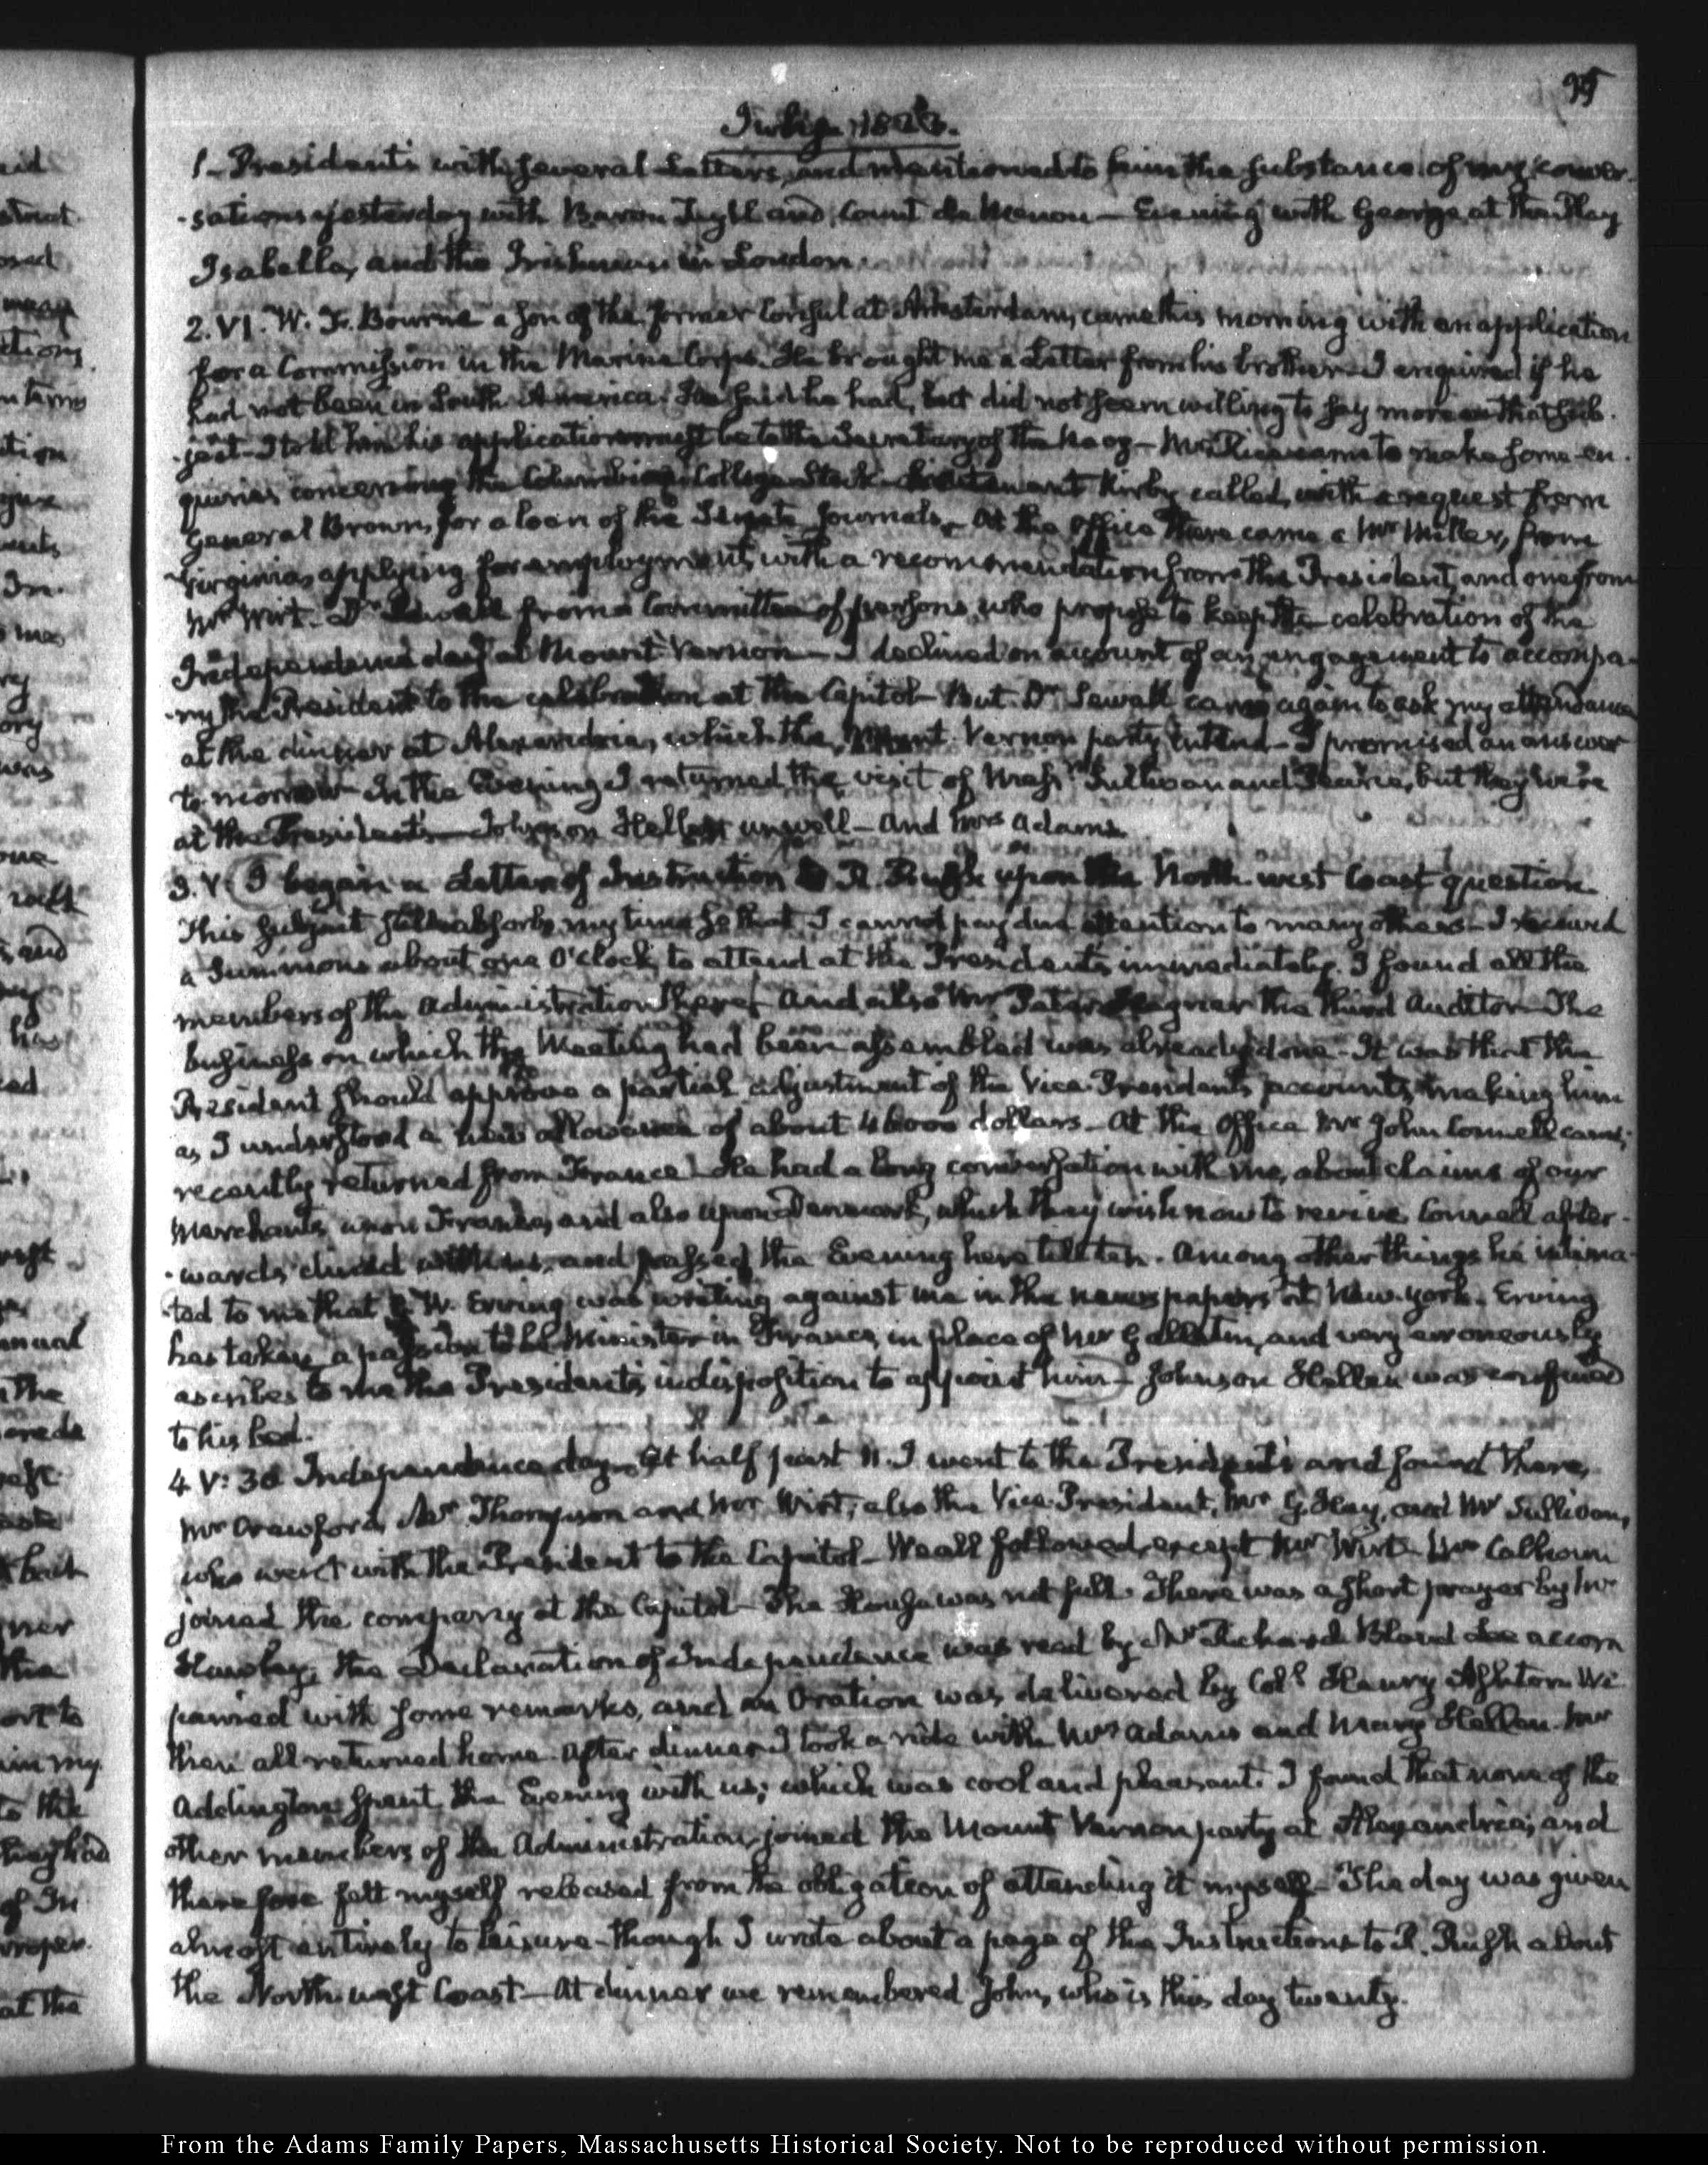 95
July 1823.
1 – President's with several Letters, and mentioned to him the substance of my conver-
-sations yesterday with Baron Tuyll and Count de Menou – Evening with George at the Play
Isabella, and the Irishman in London.
2. VI. W. F. Bourne a son of the former Consul at Amsterdam, came this morning with an application
for a Commission in the Marine Corps. He brought me a Letter from his brother – I enquired if he
had not been in South America. He said he had, but did not seem willing to say more on that sub-
-ject – I told him his application must be to the Secretary of the Navy – Mr Rice came to make some en-
quiries concerning the Columbian College Stock – Lieutenant Kirby called, with a request from
General Brown, for a loan of the Senate Journals. – At the Office there came a Mr Miller, from
Virginia, applying for employment, with a recommendation from the President, and one from
Mr Wirt – Dr Sewall from a Committee of persons who propose to keep the celebration of the
Independence day at Mount Vernon – I declined on account of an engagement to accompa-
-ny the President to the celebration at the Capitol – But Dr Sewall came again to ask my attendance
at the dinner at Alexandria, which the Mount Vernon party intend – I promised an answer
to-morrow – In the Evening I returned the visit of Messrs Sullivan and Pearce, but they were
at the President's – Johnson Hellen unwell – And Mrs Adams
3. V. I began a Letter of Instruction to R. Rush upon the North-west Coast question
This subject still absorbs my time so that I cannot pay due attention to many others – I received
a Summons about one O'Clock, to attend at the President's immediately. I found all the
members of the Administration there, And also Mr Peter Hagner the third Auditor – The
business on which the Meeting had been assembled was already done – It was that the
President should approve a partial adjustment of the Vice-President's accounts, making him
as I understood a new allowance of about 46000 dollars – At the Office Mr John Connell came,
recently returned from France – He had a long conversation with me, about claims of our
Merchants upon France, and also upon Denmark, which they wish now to revive. Connell after-
-wards dined with us, and passed the Evening here till ten. Among other things he intima-
-ted to me that G. W. Erving was writing against me in the newspapers at New-York. Erving
has taken a passion to be Minister in France, in place of Mr Gallatin, and very erroneously
ascribes to me the President's indisposition to appoint him – Johnson Hellen was confined
to his bed.
4. V: 30 Independence day – At half past 11. I went to the President's and found there,
Mr Crawford, Mr Thompson and Mr Wirt; also the Vice-President, Mr G. Hay, and Mr Sullivan,
who went with the President to the Capitol – We all followed, except Mr Wirt – Mr Calhoun
joined the company at the Capitol – The House was not full. There was a short prayer by Mr
Hawley, the Declaration of Independence was read by Mr Richard Bland Lee accom
panied with some remarks, and an Oration was delivered by Coll Henry Ashton We
then all returned home. After dinner I took a ride with Mrs Adams and Mary Hellen. Mr
Addington spent the Evening with us; which was cool and pleasant. I found that none of the
other members of the Administration joined the Mount Vernon party at Alexandria; and
therefore felt myself released from the obligation of attending it myself – The day was given
almost entirely to leisure – though I wrote about a page of the Instructions to R. Rush about
the North-west Coast – At dinner we remembered John, who is this day twenty.
From the Adams Family Papers, Massachusetts Historical Society. Not to be reproduced without permission.